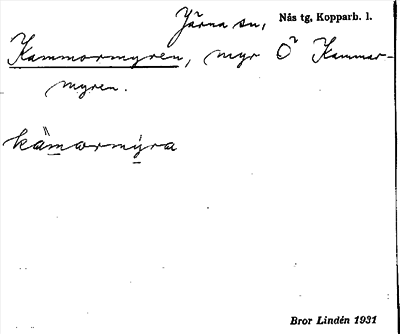 Järna sn, Nås tg, Kopparb. l.
Kammormyren, myr Ö Kammar-
myren.
kämormýra
Bror Lindén 1931